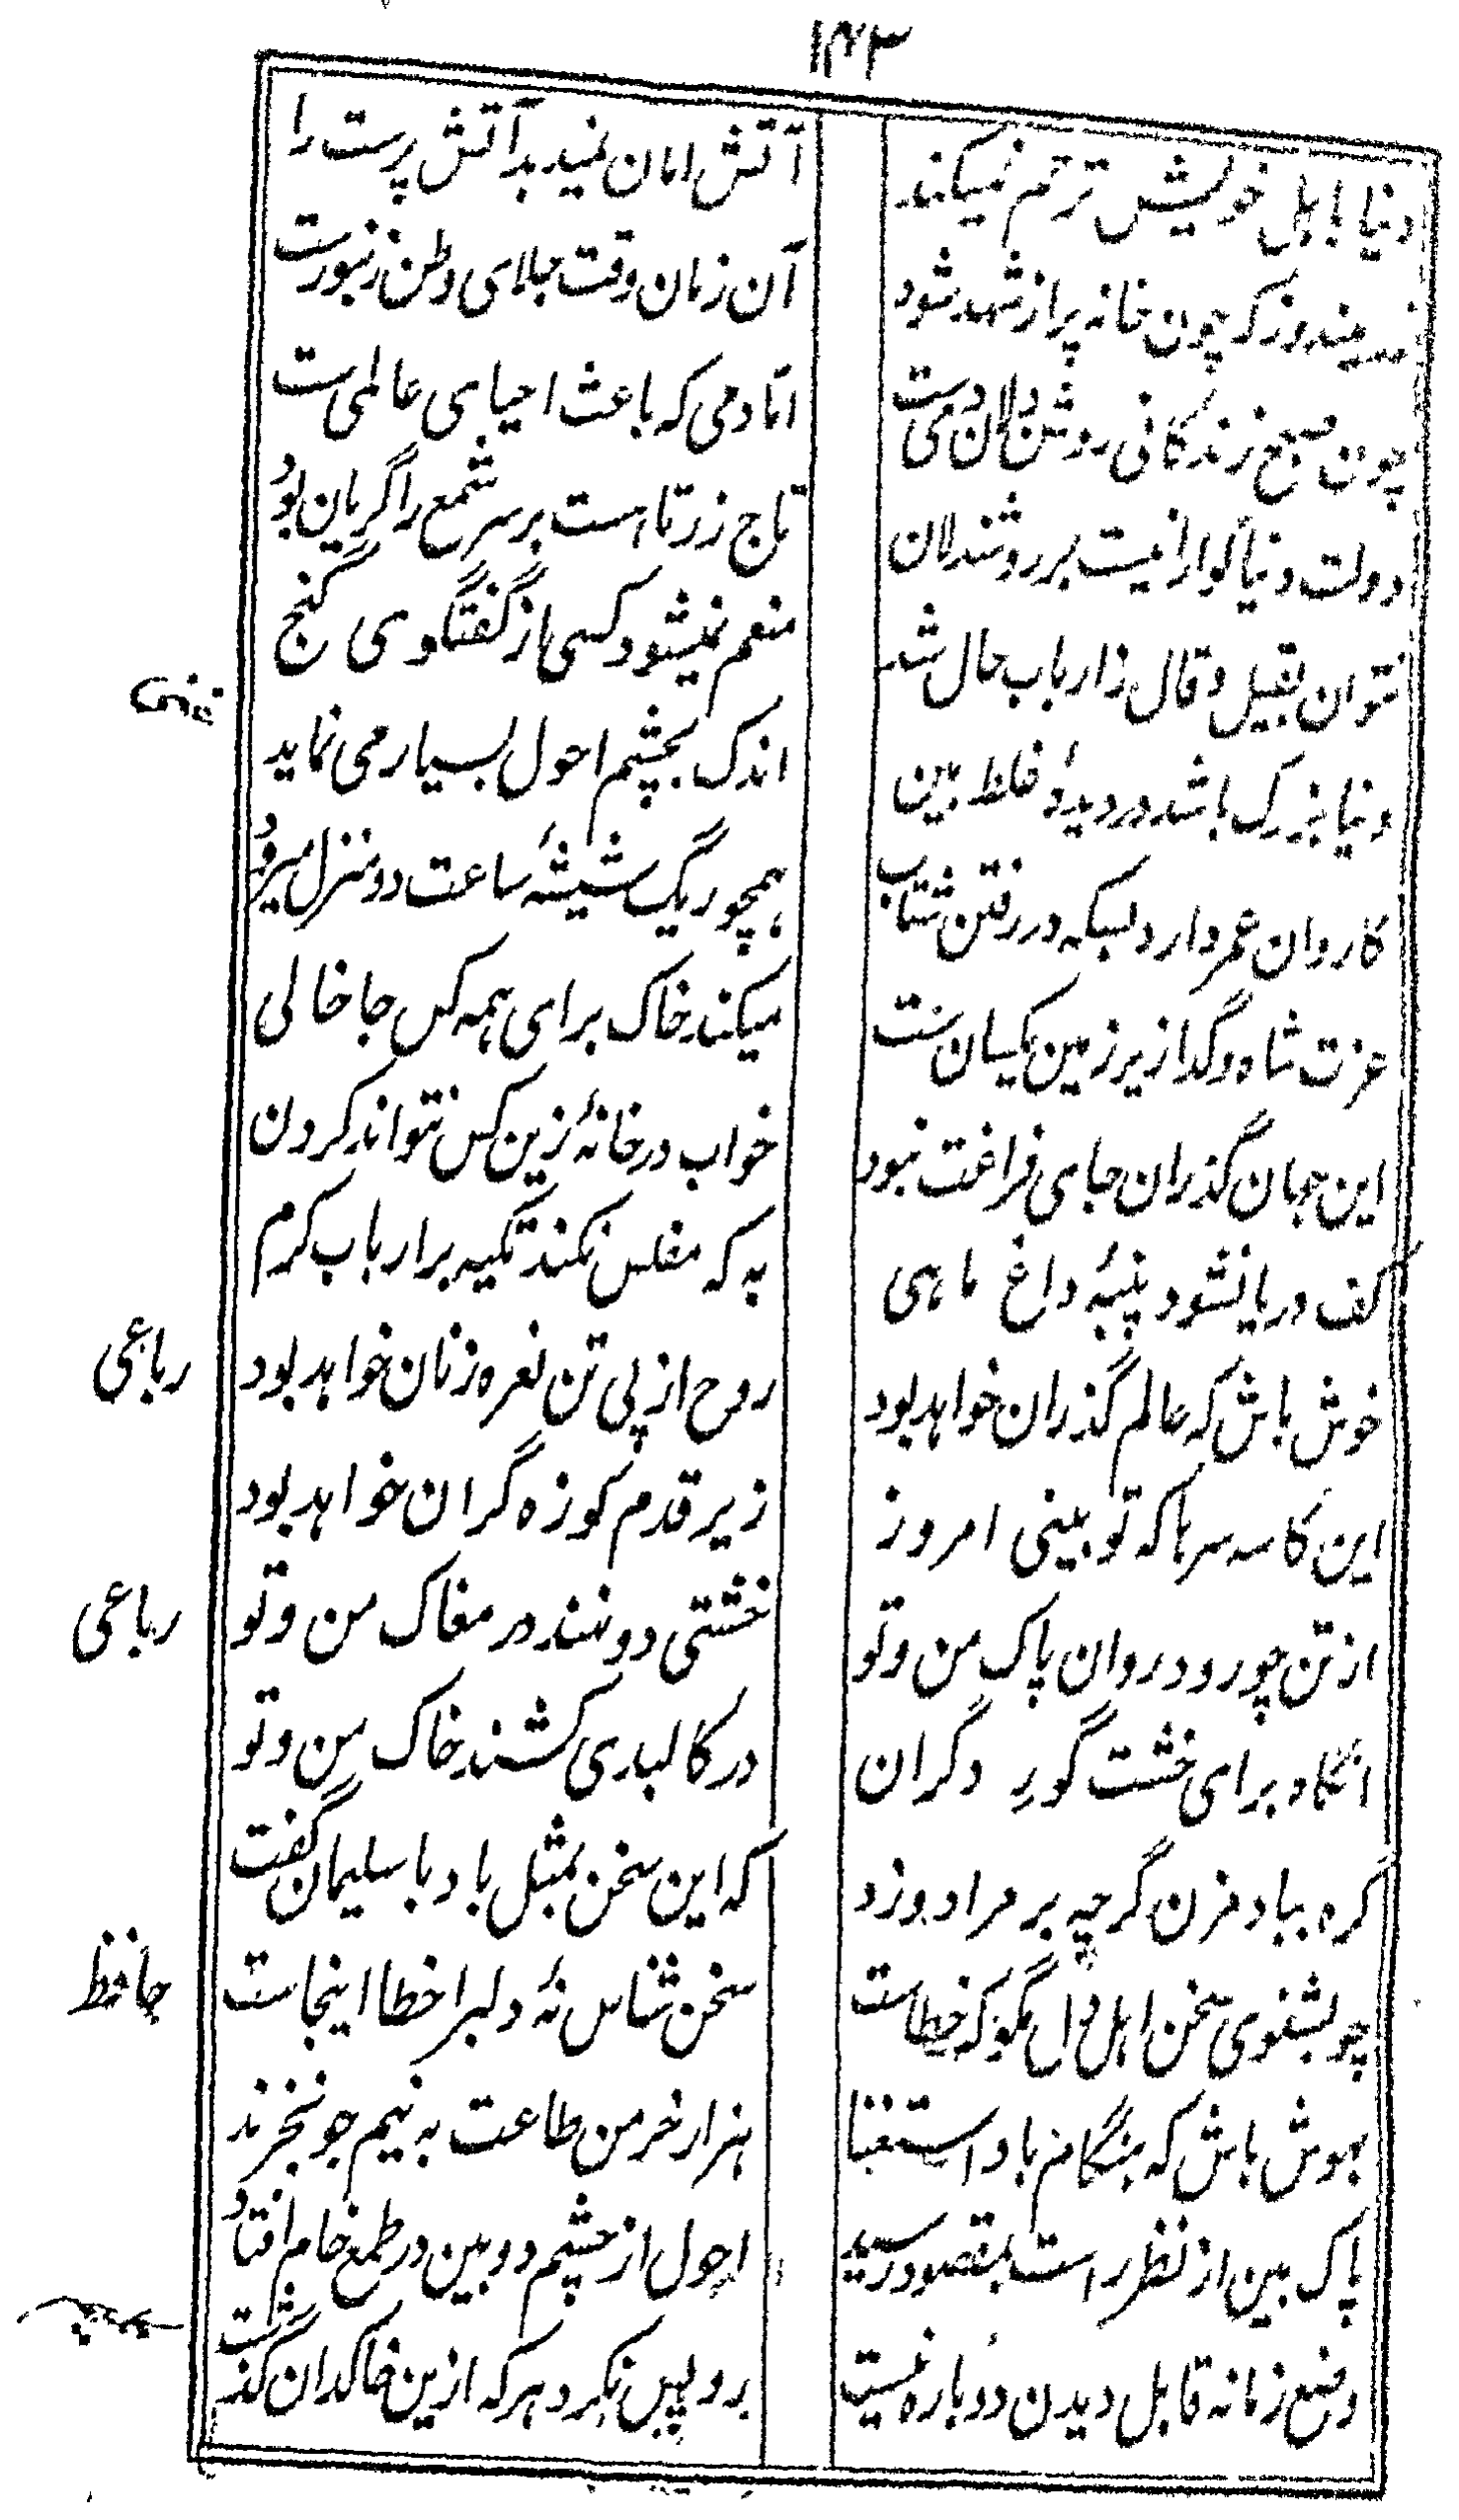 ۱۴۳
دنیا باہل خویش ترحم نمیکند
آتش امان نمیدہد آتش پرست را
میندوز کہ چون خانہ پر از شہد شود
آن زمان وقت جلای وطن زنبورست
چون صبح زندگانی روشن‌دلان دمی‌ست
امّا دمی کہ باعث احیای عالمی ست
دولت دنیا گوارا نیست بر روشندلان
تاج زر تا ہست بر سر شمع را گریان بود
نتوان بقیل و قال ز ارباب حال شد
منعم نمیشود کسی از گفتگوی گنج
غنی
دنیا بزرگ باشد در دیدۂ غلط بین
اندک بچشم احول بسیار می نماید
کاروان عمر دارد بسکہ در رفتن شتاب
ہمچو ریگ شیشۂ ساعت دو منزل میرود
عزت شاہ و گدا زیر زمین یکسان ست
میکند خاک برای ہمہ کس جا خالی
این جہان گذران جای فراغت نبود
خواب در خانۂ زین کس نتواند کردن
کف دریا نشود پنبۂ داغ ماہی
بہ کہ مفلس نکند تکیہ بر ارباب کرم
خوش باش کہ عالم گذران خواہد بود
روح از پی تن نعرہ زنان خواہد بود
رباعی
این کاسہ سرہا کہ تو بینی امروز
زیر قدم کوزہ گران خواہد بود
از تن چو رود روان پاک من و تو
خشتی دو نہند در مغاک من و تو
رباعی
آنگاہ برای خشت گورِ دگران
در کالبدی کشند خاک من و تو
گرہ بباد مزن گرچہ بر مراد وزد
کہ این سخن بمثل باد با سلیمان گفت
چو بشنوی سخن اہل دل مگو کہ خطاست
سخن شناس نۂ دلبرا خطا اینجاست
حافظ
بہوش باش کہ ہنگام باد استغنا
ہزار خرمن طاعت بہ نیم جو نخرند
پاک بین از نظر راست بمقصود رسید
احول از چشم دو بین در طمع خام افتاد
وضع زمانہ قابل دیدن دوبارہ نیست
رو پس نکرد ہر کہ ازین خاکدان گذشت